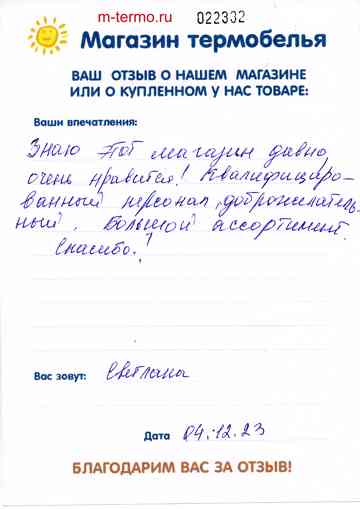 m-termo.ru 022332
Магазин термобелья
ВАШ ОТЗЫВ О НАШЕМ МАГАЗИНЕ
ИЛИ О КУПЛЕННОМ У НАС ТОВАРЕ:
Ваши впечатления:
Знаю этот магазин давно,
очень нравится! Квалифициро-
ванный персонал, доброжелатель-
ный. Большой ассортимент.
Спасибо!
Вас зовут: Светлана
Дата 04.12.23
БЛАГОДАРИМ ВАС ЗА ОТЗЫВ!